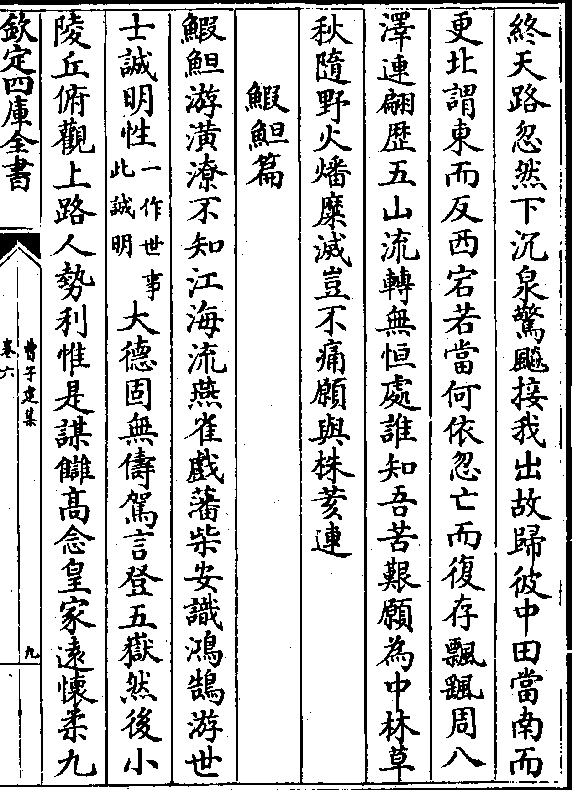 終天路忽然下沉泉驚飈接我出故歸彼中田當南而
更北謂東而反西宕若當何依忽亡而復存飄颻周八
澤連翩歴五山流轉無恒處誰知吾苦艱願為中林草
秋隨野火燔糜滅豈不痛願與株荄連
鰕䱇篇
鰕䱇游潢潦不知江海流燕雀戲藩柴安識鴻鵠游世
士誠明性一作世事此誠明大德固無儔駕言登五嶽然後小
陵丘俯觀上路人勢利惟是謀讎髙念皇家逺懐柔九
欽定四庫全書
曹子建集
卷六
九